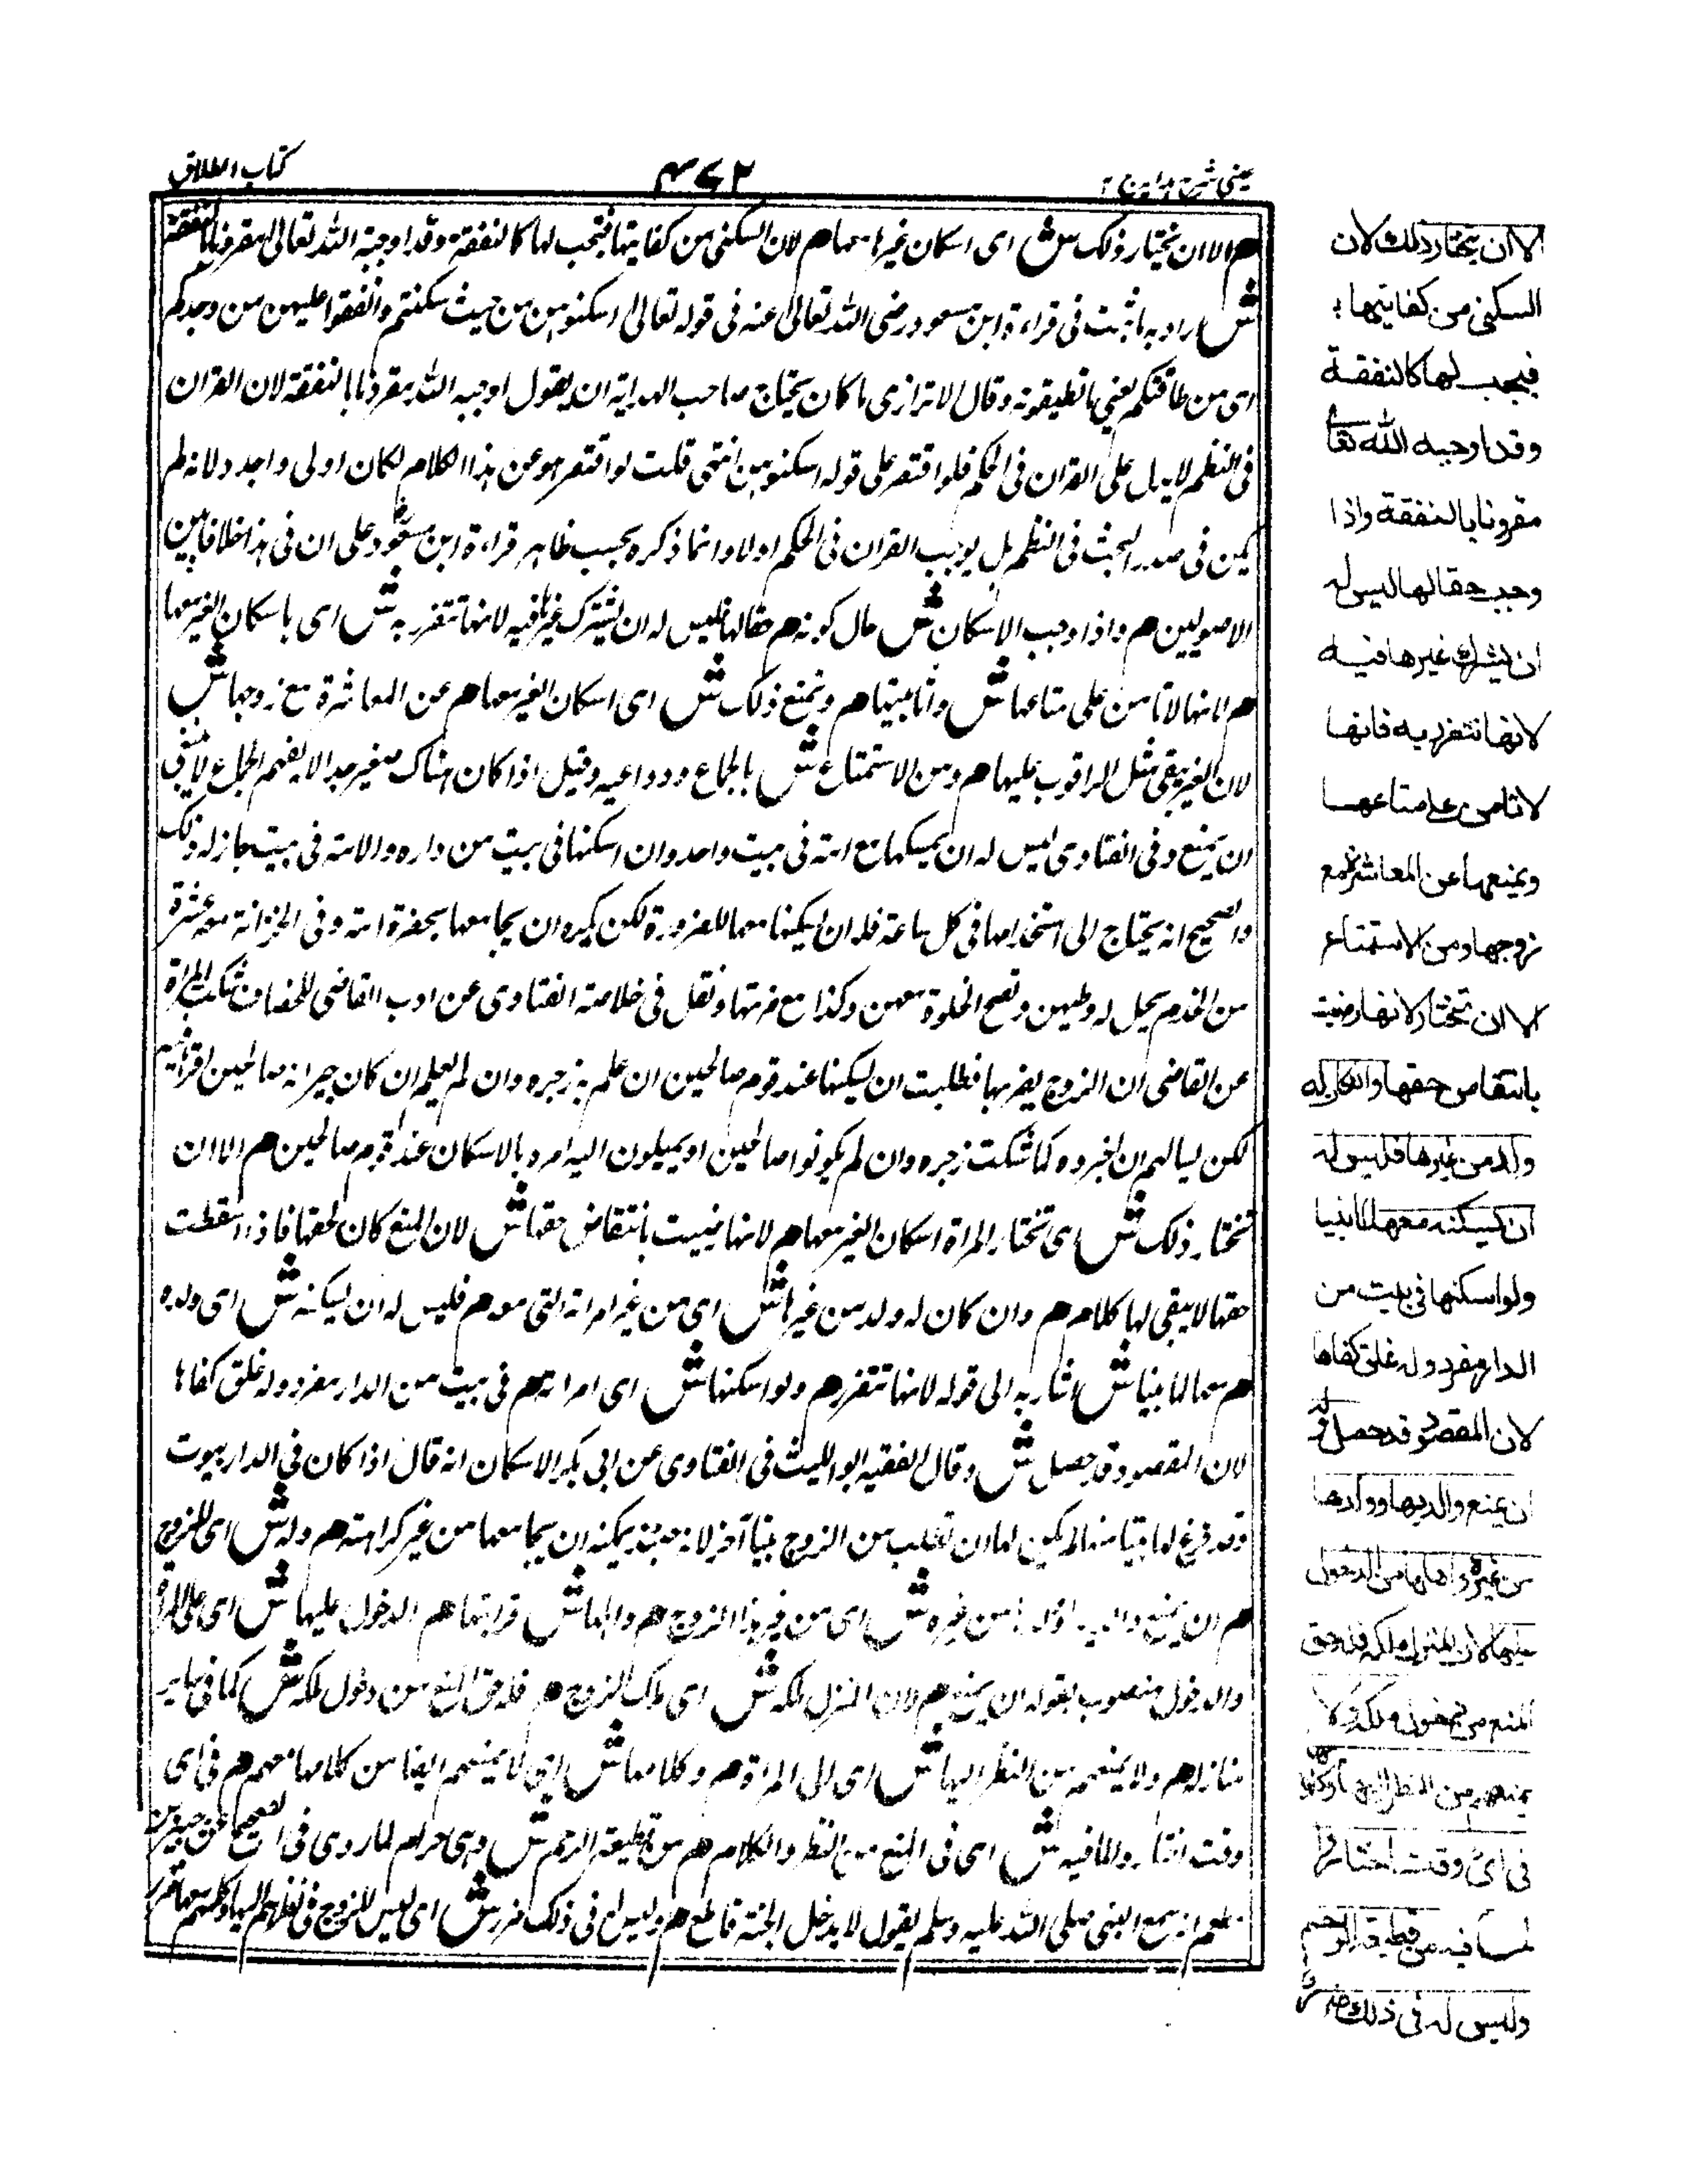 كتاب الطلاق
٤٧٢
عينى شرح هدايه ج ٢
هم الا ان تختار ذلك ش اى اسكان غيرها معها هم لان السكنى من كفايتها فتجب لها كالنفقة وقد اوجبه الله تعالى مقرونا بالنفقة
ش اراد به ما ثبت فى قراءة ابن مسعود رضى الله تعالى عنه فى قوله تعالى اسكنوهن من حيث سكنتم وانفقوا عليهن من وجدكم
اى من طاقتكم يعنى ما تطيقونه وقال الاترازى ما كان يحتاج صاحب الهداية ان يقول اوجبه الله مقرونا بالنفقة لان القران
فى النظم لا يدل على القران فى الحكم فلو اقتصر على قوله اسكنوهن انتهى قلت لو اقتصر هو عن هذا الكلام لكان اولى واجدر لانه لم
يكن فى صدد البحث فى النظم بل يوجب القران فى الحكم اولا وانما ذكره بحسب ظاهر قراءة ابن مسعود على ان فى هذا خلافا بين
الاصوليين هم واذا وجب الاسكان ش حال كونه هم حقا لها فليس له ان يشترك غيرها فيه لانها تتضرر به ش اى باسكان الغير معها
هم لانها لا تامن على متاعها ش واثاث بيتها هم ويمنع ذلك ش اى اسكان الغير معها هم عن المعاشرة مع زوجها ش
لان الغير يبقى مثل الراقوب عليها هم ومن الاستمتاع ش بالجماع ودواعيه وقيل اذا كان هناك صغير جدا لا يفهم الجماع لا ينبغى
ان يمنع وفى الفتاوى ليس له ان يمسكها مع امته فى بيت واحد وان اسكنها فى بيت من داره والامة فى بيت جاز له ذلك
والصحيح انه يحتاج الى استخدامها فى كل ساعة فله ان يسكنها معها للضرورة لكن يكره ان يجامعها بحضرة امته وفى الخزانة معه عشرة
من الخدم يحل له وطيهن وتصح الخلوة معهن وكذا مع ضرتها ونقل فى خلاصة الفتاوى عن ادب القاضى للخصاف شكت المراة
عن القاضى ان الزوج يضربها فطلبت ان يسكنها عند قوم صالحين ان علم به زجره وان لم يعلم ان كان جيرانه صالحين اقرها ثمه
لكن يسالهم ان اخبروه كما شكت زجره وان لم يكونوا صالحين او يميلون اليه امره بالاسكان عند قوم صالحين هم الا ان
تختار ذلك ش اى تختار المراة اسكان الغير معها هم لانها رضيت بانتقاص حقها ش لان المنع كان لحقها فاذا اسقطت
حقها لا يبقى لها كلام هم وان كان له ولد من غيرها ش اى من غير امراته التى معه هم فليس له ان يسكنه ش اى ولده
هم معها لما بينا ش اشار به الى قوله لانها تتضرر هم ولو اسكنها ش اى امراته هم فى بيت من الدار مفرد وله غلق كفاها
لان المقصود قد حصل ش وقال الفقيه ابو الليث فى الفتاوى عن ابى بكر الاسكان انه قال اذا كان فى الدار بيوت
وقد فرغ لها بيتا منها لم يكن لها ان تطلب من الزوج بيتا آخر لانه حينئذ يمكنه ان يجامعها من غير كراهته هم وله ش اى للزوج
هم ان يمنع والديها وولدها من غيره ش اى من غير هذا الزوج هم واهلها ش قرابتها هم الدخول عليها ش اى على المراة
والدخول منصوب بقوله ان يمنع هم لان المنزل ملكه ش اى ملك الزوج هم فله حق المنع من دخول ملكه ش كما فى ساير
منازله هم ولا يمنعهم من النظر اليها ش اى الى المراة هم وكلامها ش اى لا يمنعهم ايضا من كلامها معهم هم فى اى
وقت اختاروا لما فيه ش اى فى المنع من النظر والكلام هم من قطيعة الرحم ش وهى حرام لما روى فى الصحيح عن جبير بن
مطعم انه سمع النبى صلى الله عليه وسلم يقول لا يدخل الجنة قاطع هم وليس له فى ذلك ضرر ش اى ليس للزوج فى نظرهم اليها وكلامهم معها ضرر
الا ان تختار ذلك لان
السكنى من كفايتها
فيجب لها كالنفقة
وقد اوجبه الله تعالى
مقرونا بالنفقة واذا
وجب حقا لها ليس له
ان يشرك غيرها فيه
لانها تتضرر به فانها
لا تامن على متاعها
ويمنعها عن المعاشرة مع
زوجها ومن الاستمتاع
الا ان تختار لانها رضيت
بانتقاص حقها وان كان له
ولد من غيرها فليس له
ان يسكنه معها لما بينا
ولو اسكنها فى بيت من
الدار مفرد وله غلق كفاها
لان المقصود قد حصل وله
ان يمنع والديها وولدها
من غيره واهلها من الدخول
عليها لان المنزل ملكه فله حق
المنع من دخول ملكه ولا
يمنعهم من النظر اليها وكلامها
فى اى وقت اختاروا
لما فيه من قطيعة الرحم
وليس له فى ذلك ضرر